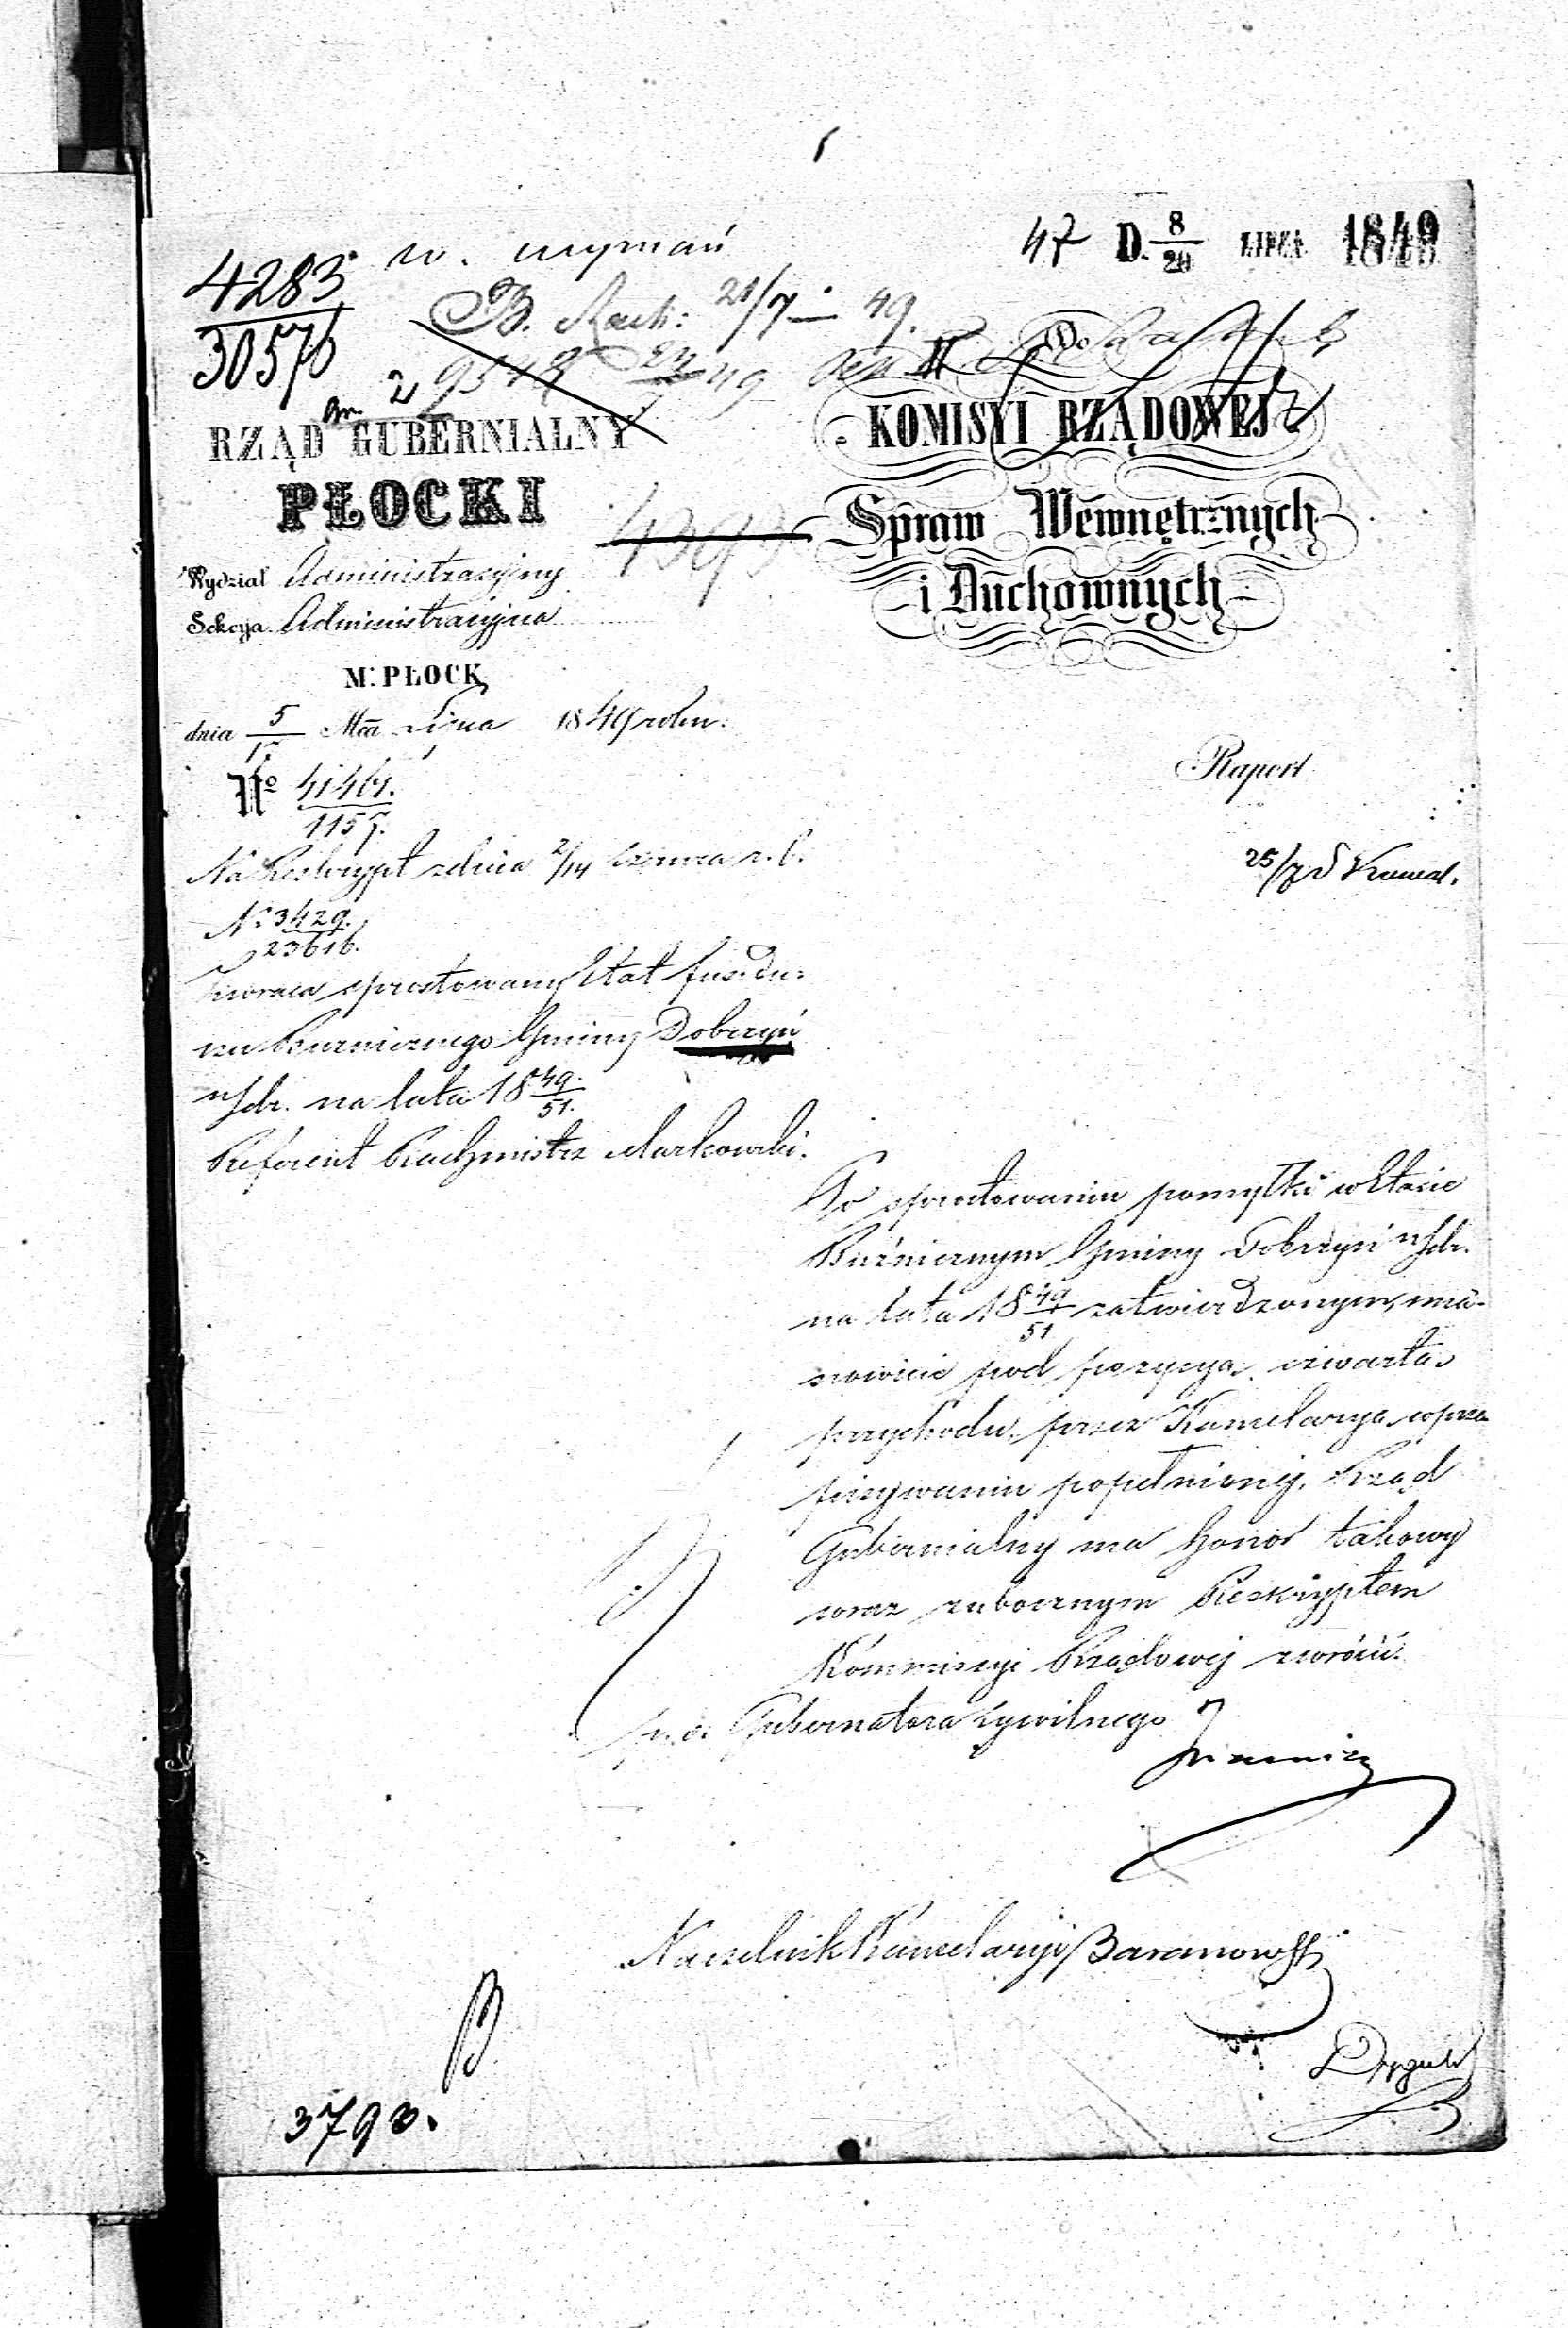 47 D. 8/20 LIPCA 1849
4283
30576
w. wyznań
B. Rach: 21/7 — 49.
Do
RZĄD GUBERNIALNY
PŁOCKI
KOMISYI RZĄDOWEJ
Spraw Wewnętrznych
i Duchownych
Wydział Administracyjny
Sekcya Administracyjna
M. PŁOCK
dnia 5/17 Mca Lipca 1849 roku.
No 41461.
1157.
Raport
25/7
Na Reskrypt z dnia 2/14 Czerwca r. b.
No 3429.
23616.
Zwraca sprostowany Etat fundu-
szu Bużniczego Gminy Dobrzyń
n/Dr. na lata 18 49/51.
Referent Rachmistrz Markowski.
Po sprostowaniu pomyłki w Etacie
Bużniczym Gminy Dobrzyń n/Dr.
na lata 18 49/51 zatwierdzonym, mia-
nowicie pod pozycyą czwartą
przychodu, przez Kancelaryą w prze-
pisywaniu popełnionej, Rząd
Gubernialny ma honor takowy
wraz z ubocznym Reskryptem
Kommissyi Rządowej zwrócić.
p. o. Gubernatora Cywilnego
Naczelnik Kancelaryi Baranowski
3793.